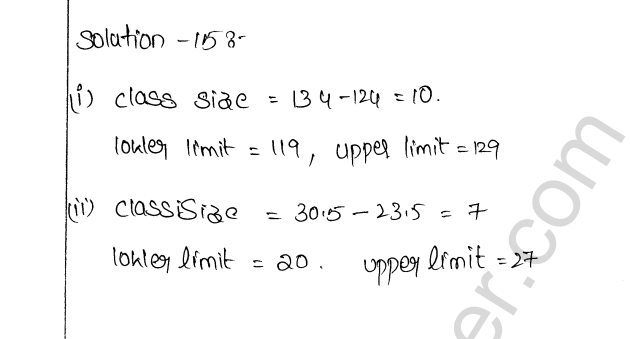 Solution - 15 :-
(i) class size = 134 - 124 = 10.
lower limit = 119, upper limit = 129
(ii) class size = 30.5 - 23.5 = 7
lower limit = 20. upper limit = 27
er.com